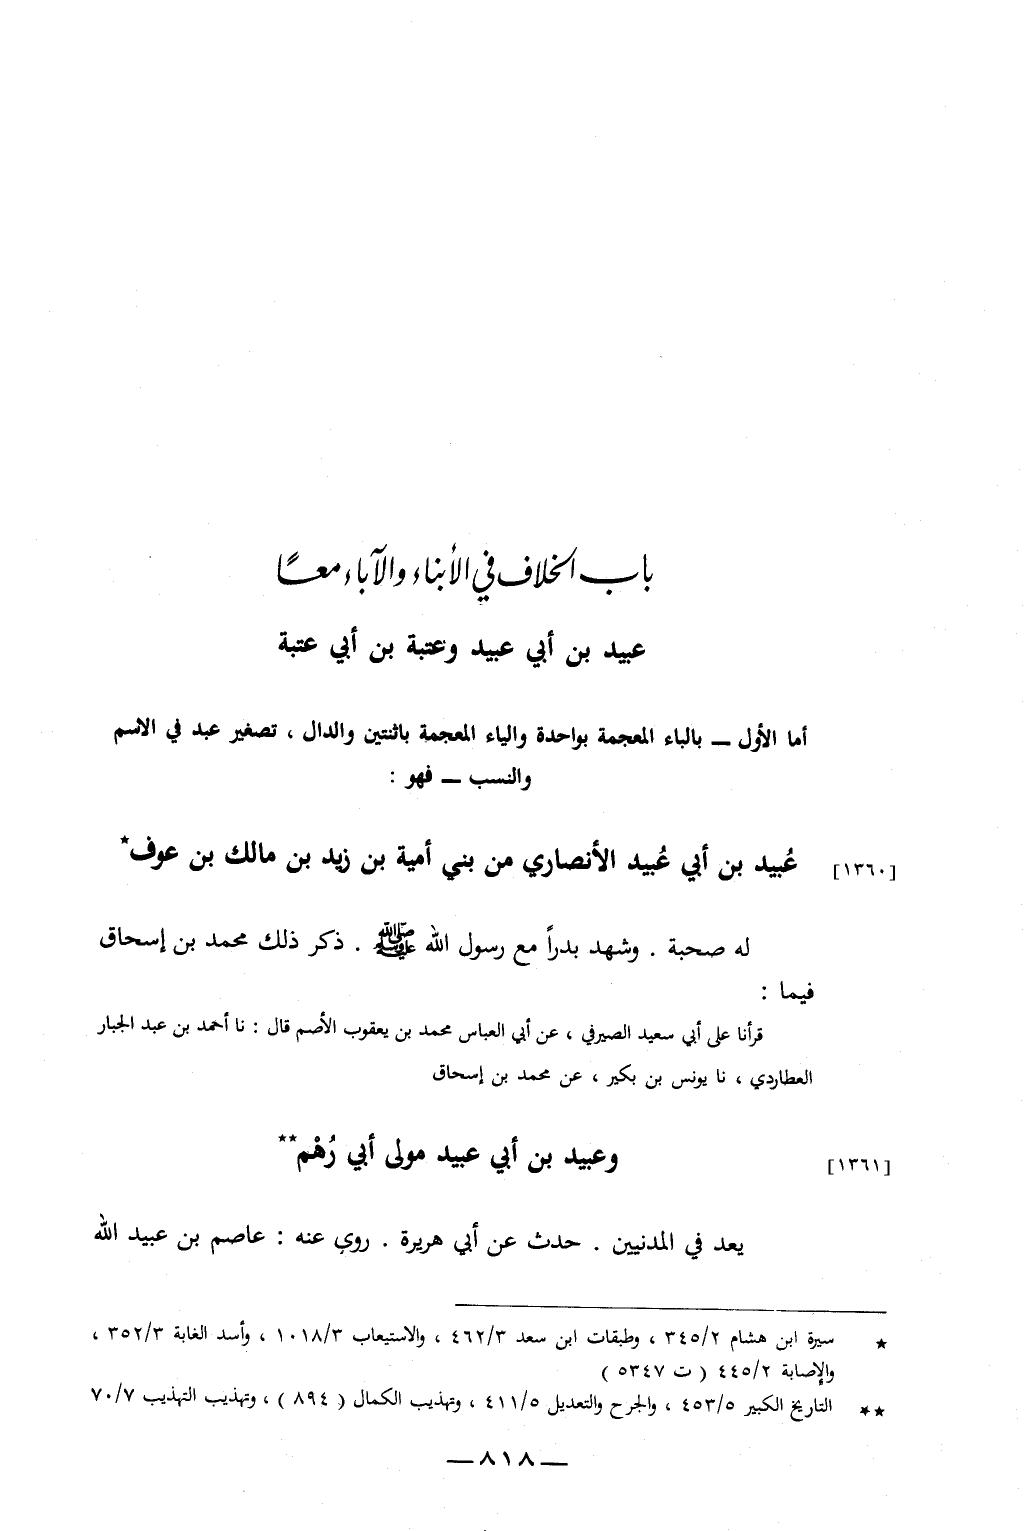 باب الخلاف في الأبناء والآباء معًا
عبيد بن أبي عبيد وعتبة بن أبي عتبة
أما الأول ــ بالباء المعجمة بواحدة والياء المعجمة باثنتين والدال ، تصغير عبد في الاسم
والنسب ــ فهو :
[١٣٦٠] عُبيد بن أبي عُبيد الأنصاري من بني أمية بن زيد بن مالك بن عوف*
له صحبة . وشهد بدراً مع رسول الله ﷺ . ذكر ذلك محمد بن إسحاق
فيما :
قرأنا على أبي سعيد الصيرفي ، عن أبي العباس محمد بن يعقوب الأصم قال : نا أحمد بن عبد الجبار
العطاردي ، نا يونس بن بكير ، عن محمد بن إسحاق
[١٣٦١] وعبيد بن أبي عبيد مولى أبي رُهْم**
يعد في المدنيين . حدث عن أبي هريرة . روي عنه : عاصم بن عبيد الله
* سيرة ابن هشام ٣٤٥/٢ ، وطبقات ابن سعد ٤٦٢/٣ ، والاستيعاب ١٠١٨/٣ ، وأسد الغابة ٣٥٢/٣ ،
والإصابة ٤٤٥/٢ ( ت ٥٣٤٧ )
** التاريخ الكبير ٤٥٣/٥ ، والجرح والتعديل ٤١١/٥ ، وتهذيب الكمال ( ٨٩٤ ) ، وتهذيب التهذيب ٧٠/٧
ــ ٨١٨ ــ